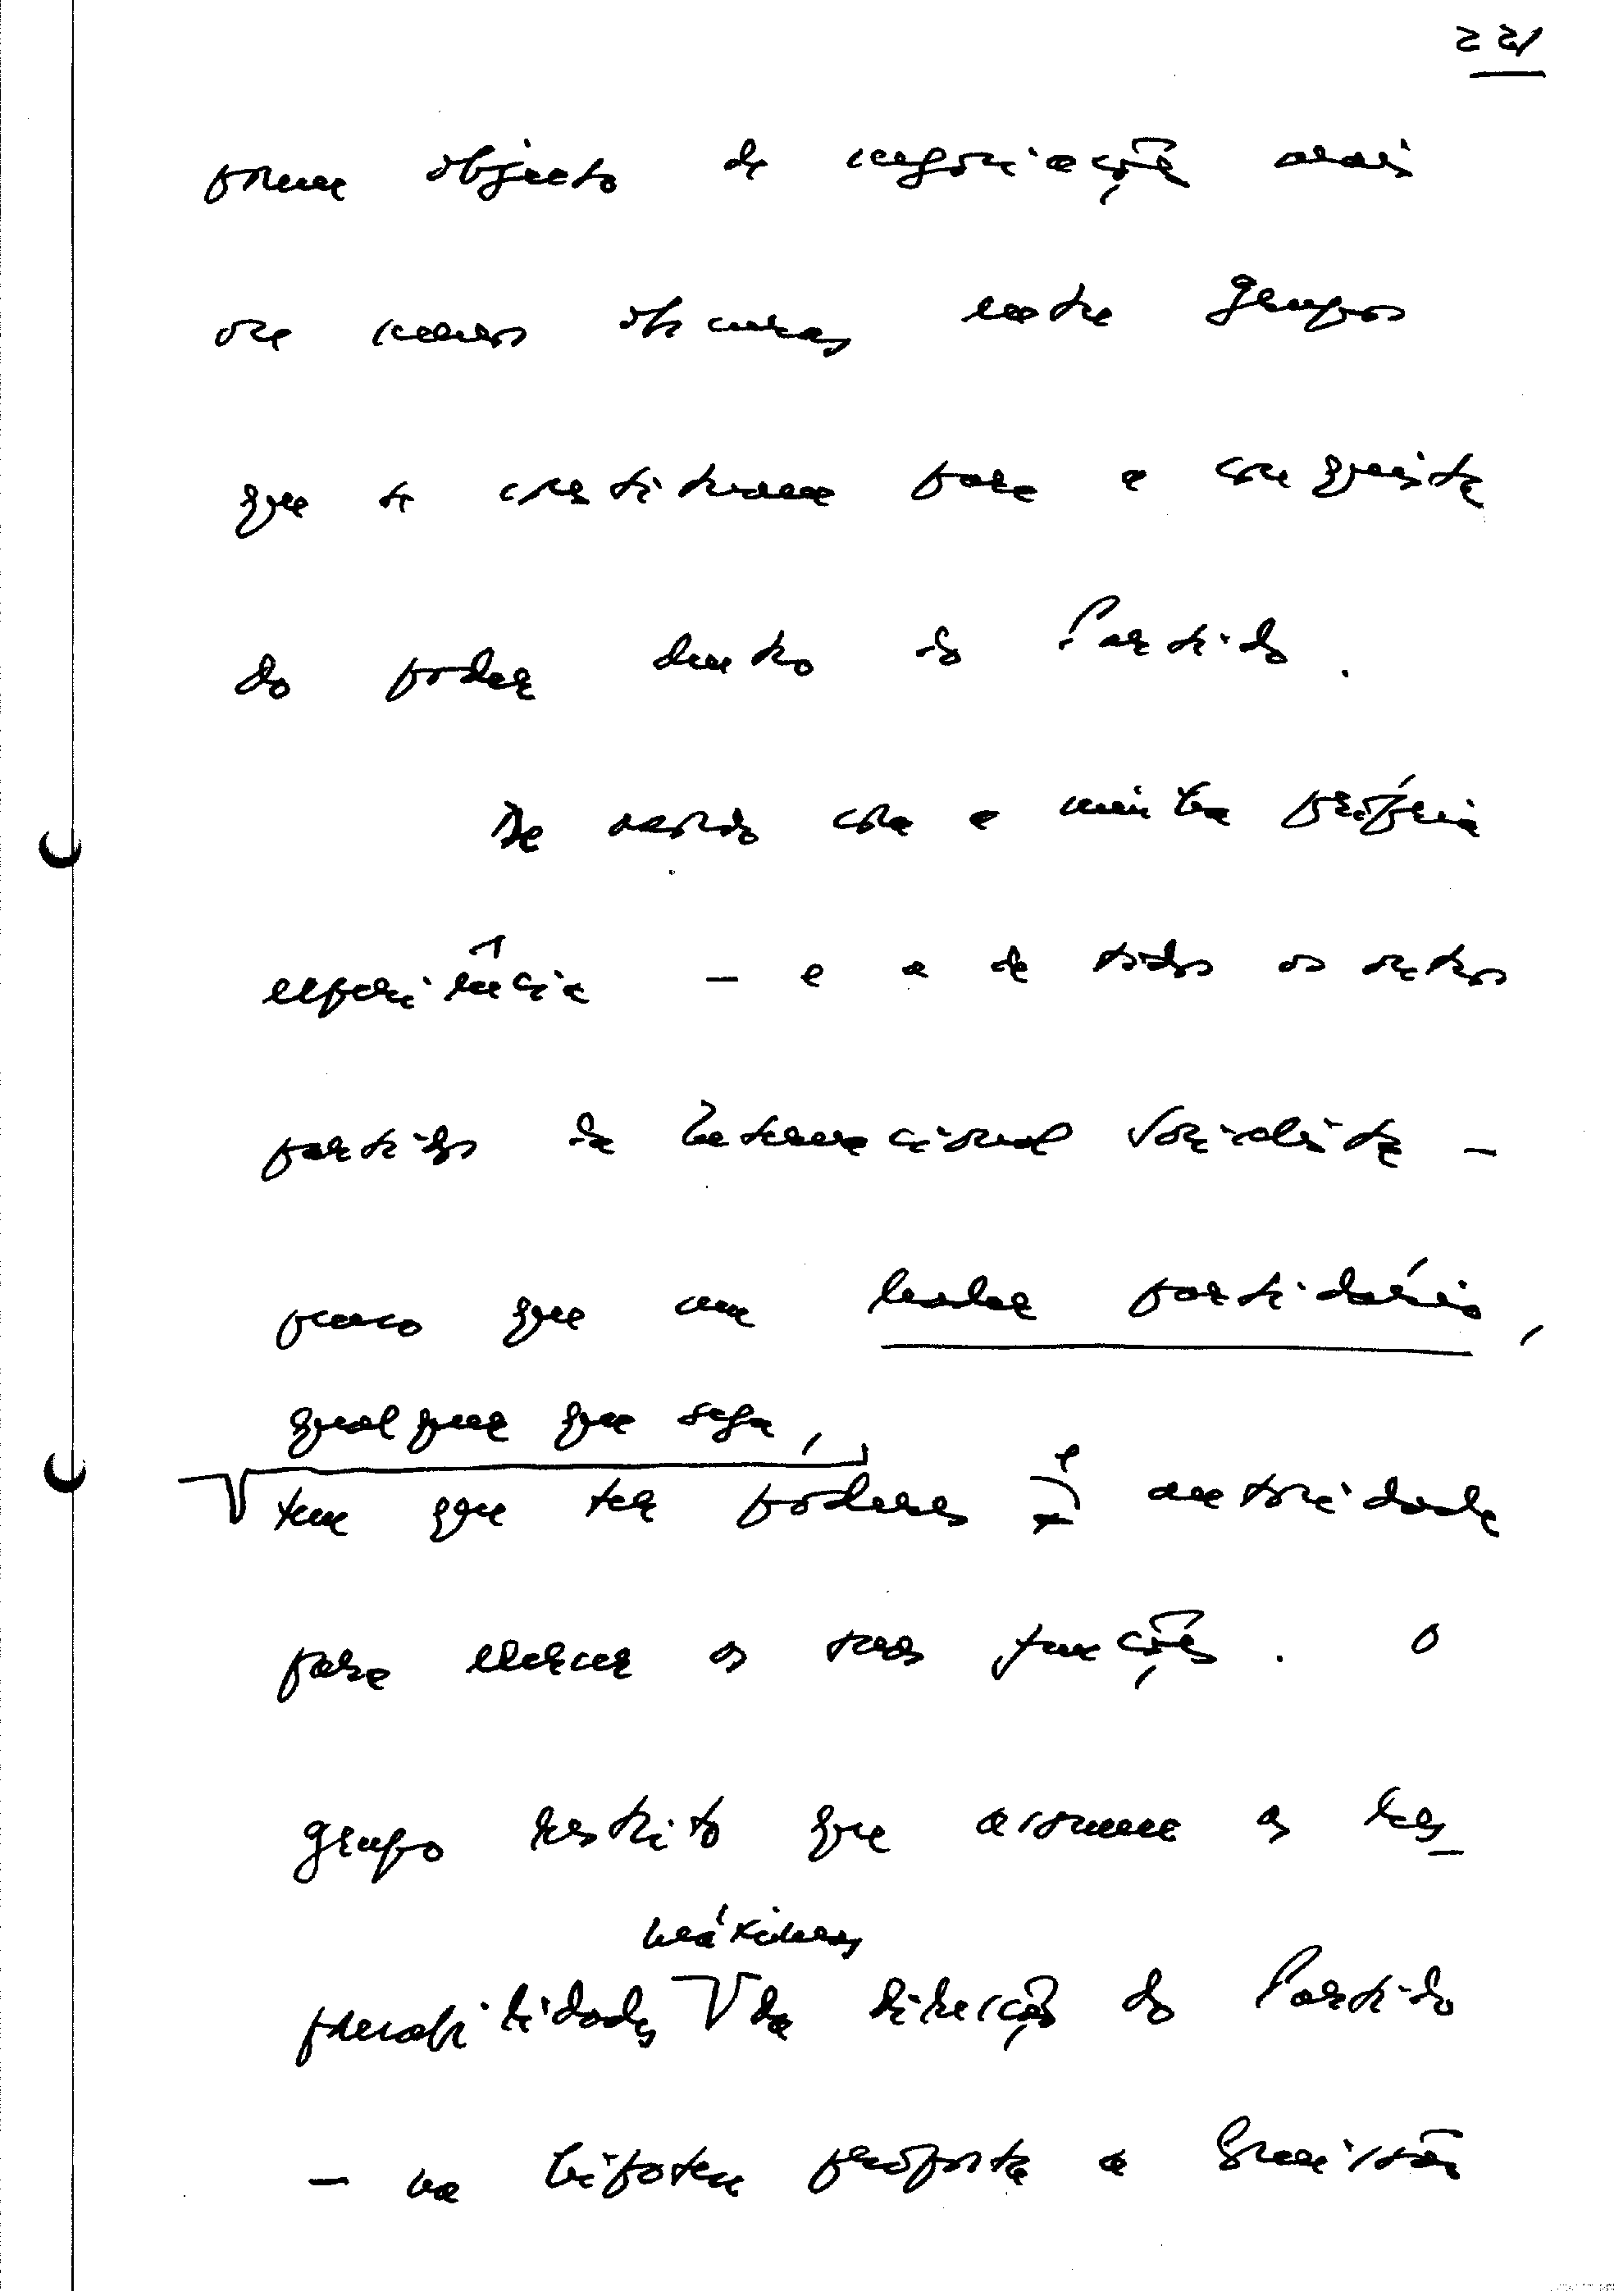 22/
forem objecto de negociações mais
ou menos obscuras, entre grupos
que se constituem para a conquista
do poder dentro do Partido.
De acordo com a minha própria
experiência - e a de todos os outros
partidos da Internacional Socialista -
penso que um leader partidário,
qualquer que seja,
tem que ter poderes e autoridade
para exercer as suas funções. O
grupo restrito que assume as res-
ponsabilidades máximas da direcção do Partido
- na hipótese proposta a Comissão